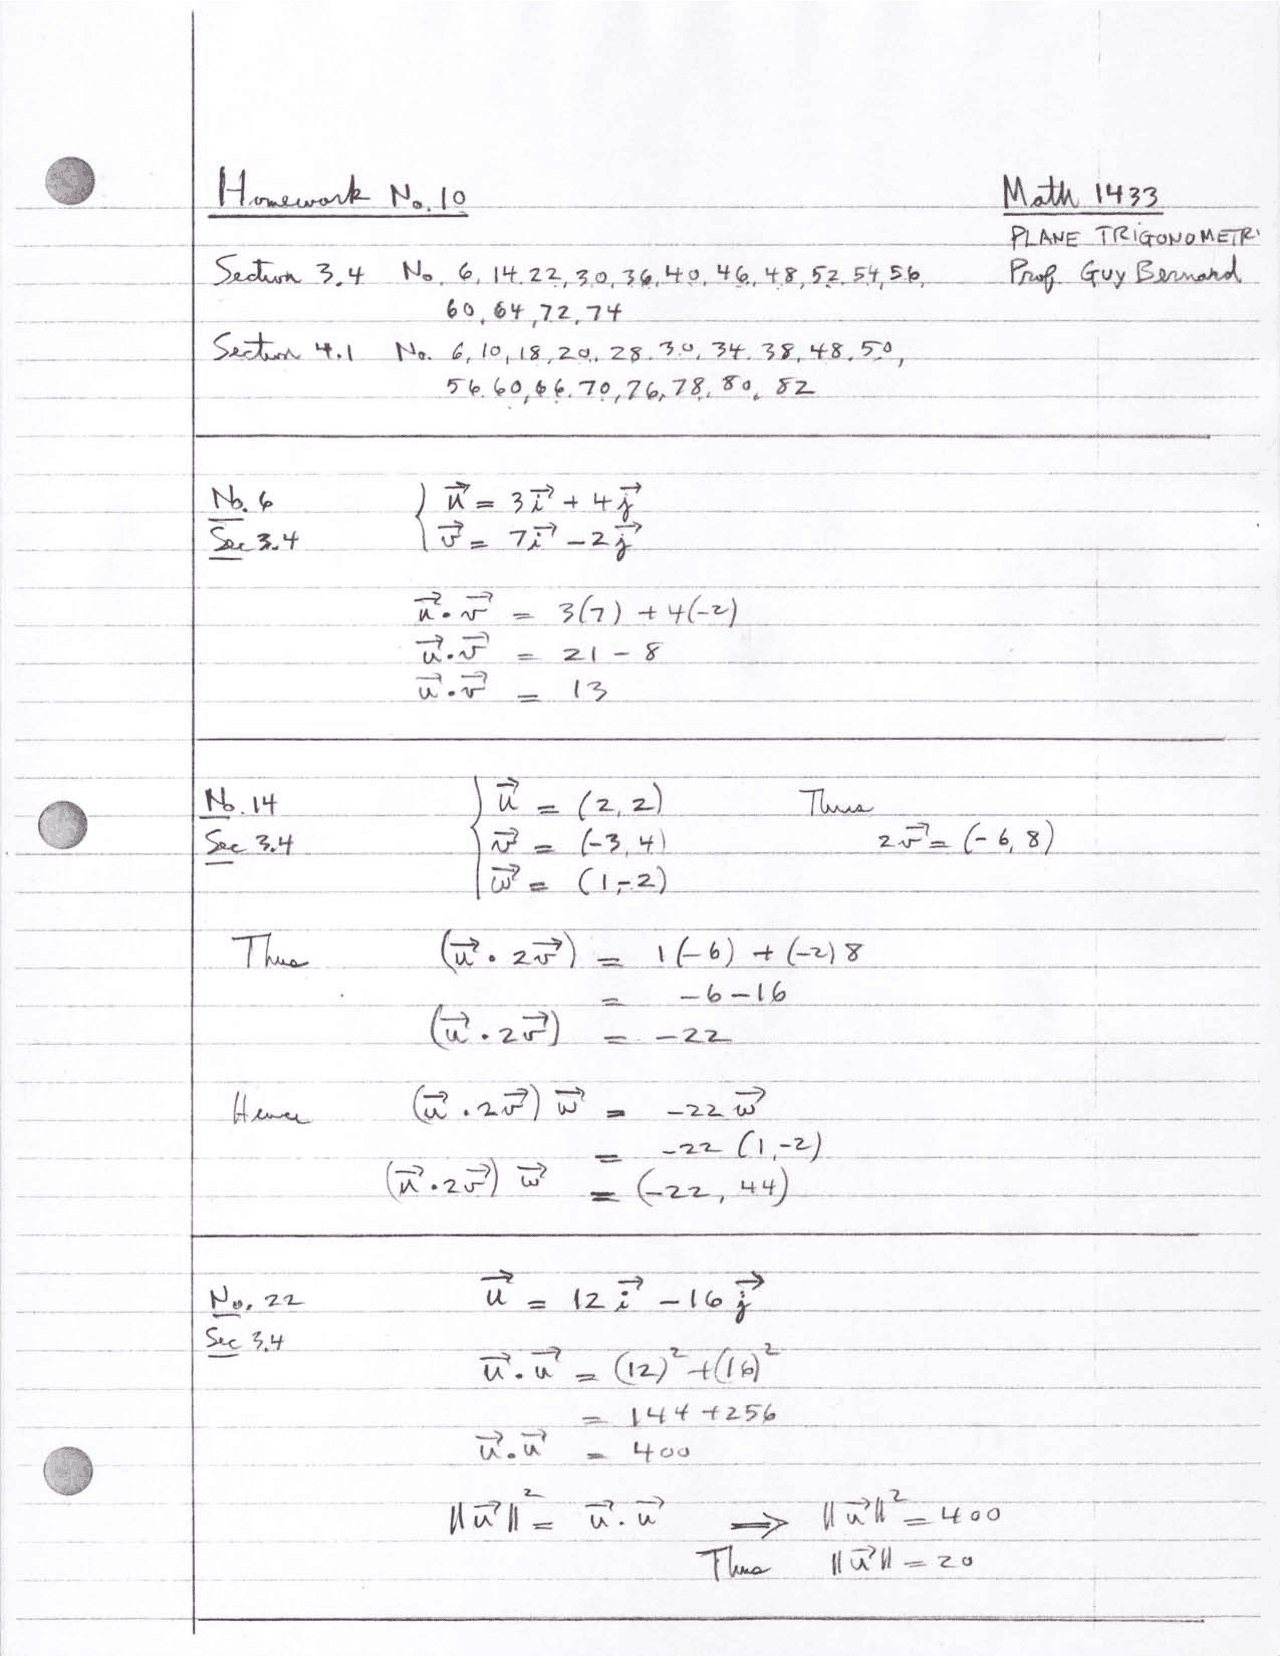 Homework No. 10
Math 1433
PLANE TRIGONOMETR
Section 3.4 No. 6, 14, 22, 30, 36, 40, 46, 48, 52, 54, 56,
Prof. Guy Bernard
60, 64, 72, 74
Section 4.1 No. 6, 10, 18, 20, 28, 30, 34, 38, 48, 50,
56, 60, 66, 70, 76, 78, 80, 82
No. 6
Sec 3.4
{ u⃗ = 3i⃗ + 4j⃗
v⃗ = 7i⃗ - 2j⃗
u⃗ · v⃗ = 3(7) + 4(-2)
u⃗ · v⃗ = 21 - 8
u⃗ · v⃗ = 13
No. 14
Sec 3.4
{ u⃗ = (2, 2) Thus
v⃗ = (-3, 4) 2v⃗ = (-6, 8)
w⃗ = (1, -2)
Thus (u⃗ · 2v⃗) = 1(-6) + (-2)8
= -6 - 16
(u⃗ · 2v⃗) = -22
Hence (u⃗ · 2v⃗) w⃗ = -22 w⃗
= -22 (1, -2)
(u⃗ · 2v⃗) w⃗ = (-22, 44)
No. 22
Sec 3.4
u⃗ = 12i⃗ - 16j⃗
u⃗ · u⃗ = (12)² + (16)²
= 144 + 256
u⃗ · u⃗ = 400
||u⃗||² = u⃗ · u⃗ ⟹ ||u⃗||² = 400
Thus ||u⃗|| = 20